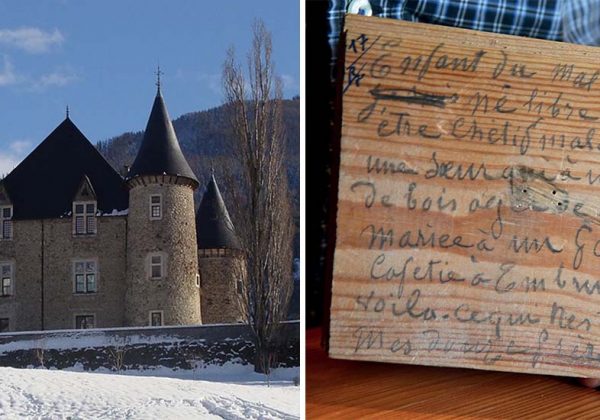 17/
Enfant du mal
né libre
être chetif mal
une Sœur qui à
de bois agée de
mariee à un Ga
Cafetié à Embrun
Voila-ce qui
Mes douze